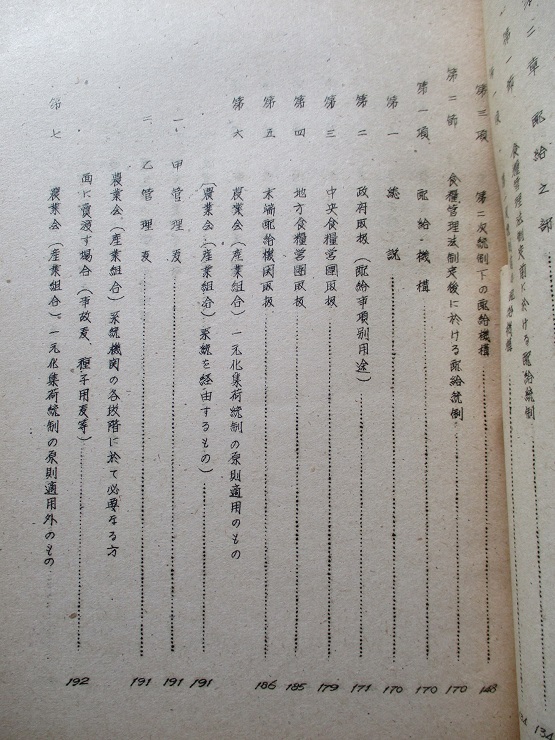 第二章 配給之部
第一節 食糧管理法制定前に於ける配給統制
第三項 第二次統制下の配給機構 148
第二節 食糧管理法制定後に於ける配給統制 170
第一項 配給機構 170
第一 総説 170
第二 政府取扱（配給事項別用途） 171
第三 中央食糧営團取扱 179
第四 地方食糧営團取扱 185
第五 末端配給機関取扱 186
第六 農業会（産業組合）一元化集荷統制の原則適用のもの
（農業会（産業組合）系統を経由するもの） 191
一、甲管理麦 191
二、乙管理麦 191
農業会（産業組合）系統機関の各段階に於て必要なる方
面に賣渡す場合（事故麦、種子用麦等）
第七 農業会（産業組合）一元化集荷統制の原則適用外のもの 192
134